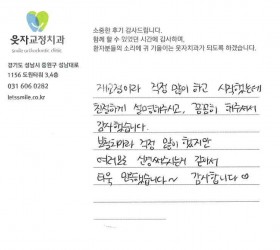 웃자교정치과
smile orthodontic clinic
경기도 성남시 중원구 성남대로
1156 도원타워 3,4층
031 606 0282
letssmile.co.kr
소중한 후기 감사드립니다.
함께 할 수 있었던 시간에 감사하며,
환자분들의 소리에 귀 기울이는 웃자교정치과 되도록 하겠습니다.
재교정이라 걱정 많이 하고 시작했는데
친절하게 설명해주시고, 꼼꼼히 해주셔서
감사했습니다.
보험치아라 걱정 많이 했지만
여러모로 신경써주시는거 같아서
더욱 만족했습니다~ 감사합니다♡